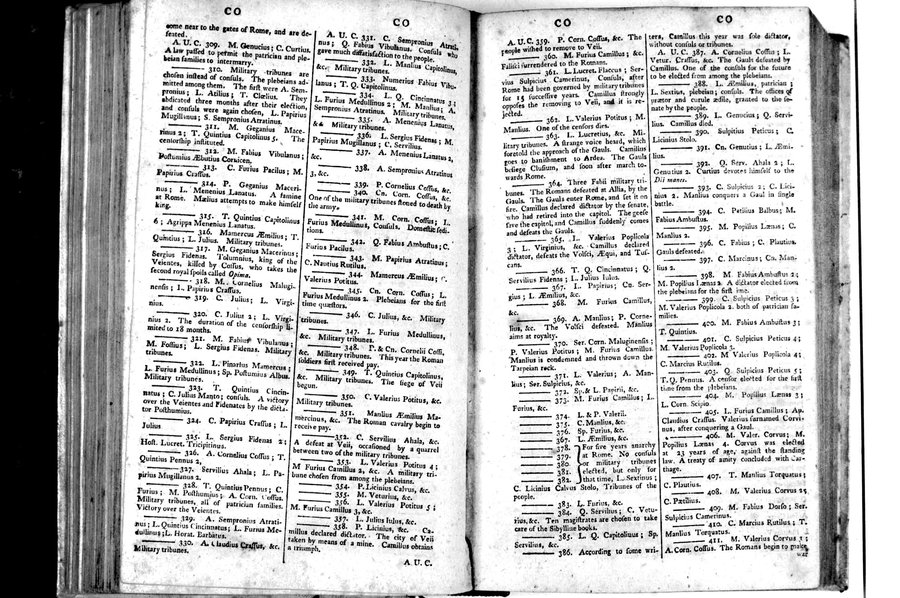 CO
some near to the gates of Rome, and are de-
feated.
A. U. C. 309. M. Genucius; C. Curtius.
A law passed to permit the patrician and ple-
beian families to intermarry.
——— 310. Military tribunes are
chosen instead of consuls. The plebeians ad-
mitted among them. The first were A. Sem-
pronius; L. Atilius; T. Clœlius. They
abdicated three months after their election,
and consuls were again chosen, L. Papirius
Mugillanus; S. Sempronius Atratinus.
——— 311. M. Geganius Mace-
rinus 2; T. Quintius Capitolinus 5. The
censorship instituted.
——— 312. M. Fabius Vibulanus;
Posthumius Æbutius Cornicen.
——— 313. C. Furius Pacilus; M.
Papirius Crassus.
——— 314. P. Geganius Maceri-
nus; L. Menenius Lanatus. A famine
at Rome. Mælius attempts to make himself
king.
——— 315. T. Quintius Capitolinus
6; Agrippa Menenius Lanatus.
——— 316. Mamercus Æmilius; T.
Quintius; L. Julius. Military tribunes.
——— 317. M. Geganius Macerinus;
Sergius Fidenas. Tolumnius, king of the
Veientes, killed by Cossus, who takes the
second royal spoils called Opima.
——— 318. M. Cornelius Malugi-
nensis; L. Papirius Crassus.
——— 319. C. Julius; L. Virgi-
nius.
——— 320. C. Julius 2; L. Virgi-
nius 2. The duration of the censorship li-
mited to 18 months.
——— 321. M. Fabius Vibulanus;
M. Fossius; L. Sergius Fidenas. Military
tribunes.
——— 322. L. Pinarius Mamercus;
L. Furius Medullinus; Sp. Postumius Albus.
Military tribunes.
——— 323. T. Quintius Cincin-
natus; C. Julius Manto; consuls. A victory
over the Veientes and Fidenates by the dicta-
tor Posthumius.
——— 324. C. Papirius Crassus; L.
Julius
——— 325. L. Sergius Fidenas 2;
Host. Lucret. Tricipitinus.
——— 326. A. Cornelius Cossus; T.
Quintius Pennus 2,
——— 327. Servilius Ahala; L. Pa-
pirius Mugillanus 2.
——— 328. T. Quintius Pennus; C.
Furius; M. Posthumius; A. Corn. Cossus.
Military tribunes, all of patrician families.
Victory over the Veientes.
——— 329. A. Sempronius Atrati-
nus; L. Quintius Cincinnatus; L. Furius Me-
dullinus; L. Horat. Barbatus.
——— 330. A. Claudius Crassus, &c.
Military tribunes.
CO
A. U. C. 331. C. Sempronius Atrati-
nus; Q. Fabius Vibulanus. Consuls who
gave much dissatisfaction to the people.
——— 332. L. Manlius Capitolinus,
&c. Military tribunes.
——— 333. Numerius Fabius Vibu-
lanus; T. Q. Capitolinus.
——— 334. L. Q. Cincinnatus 3;
L. Furius Medullinus 2; M. Manlius; A.
Sempronius Atratinus. Military tribunes.
——— 335. A. Menenius Lanatus,
&c. Military tribunes.
——— 336. L. Sergius Fidenas; M.
Papirius Mugillanus; C. Servilius.
——— 337. A. Menenius Lanatus 2,
&c.
——— 338. A. Sempronius Atratinus
3, &c.
——— 339. P. Cornelius Cossus, &c.
——— 340. Cn. Corn. Cossus, &c.
One of the military tribunes stoned to death by
the army.
——— 341. M. Corn. Cossus; L.
Furius Medullinus, Consuls. Domestic sedi-
tions.
——— 342. Q. Fabius Ambustus; C.
Furius Pacilus.
——— 343. M. Papirius Atratinus;
C. Nautius Rutilus.
——— 344. Mamercus Æmilius; C.
Valerius Potitus.
——— 345. Cn. Corn. Cossus; L.
Furius Medullinus 2. Plebeians for the first
time quæstors.
——— 346. C. Julius, &c. Military
tribunes.
——— 347. L. Furius Medullinus,
&c. Military tribunes.
——— 348. P. & Cn. Cornelii Cossi,
&c. Military tribunes. This year the Roman
soldiers first received pay.
——— 349. T. Quintius Capitolinus,
&c. Military tribunes. The siege of Veii
begun.
——— 350. C. Valerius Potitus, &c.
Military tribunes.
——— 351. Manlius Æmilius Ma-
mercinus, &c. The Roman cavalry begin to
receive pay.
——— 352. C. Servilius Ahala, &c.
A defeat at Veii, occasioned by a quarrel
between two of the military tribunes.
——— 353. L. Valerius Potitus 4;
M Furius Camillus 2, &c. A military tri-
bune chosen from among the plebeians.
——— 354. P. Licinius Calvus, &c.
——— 355. M. Veturius, &c.
——— 356. L. Valerius Potitus 5;
M. Furius Camillus 3, &c.
——— 357. L. Julius Iulus, &c.
——— 358. P. Licinius, &c. Ca-
millus declared dictator. The city of Veii
taken by means of a mine. Camillus obtains
a triumph.
A. U. C.
CO
A. U. C. 359. P. Corn. Cossus, &c. The
people wished to remove to Veii.
——— 360. M. Furius Camillus; &c.
Falisci surrendered to the Romans.
——— 361. L. Lucret. Flaccus; Ser-
vius Sulpicius Camerinus, Consuls, after
Rome had been governed by military tribunes
for 15 successive years. Camillus strongly
opposes the removing to Veii, and it is re-
jected.
——— 362. L. Valerius Potitus; M.
Manlius. One of the censors dies.
——— 363. L. Lucretius, &c. Mi-
litary tribunes. A strange voice heard, which
foretold the approach of the Gauls. Camillus
goes to banishment to Ardea. The Gauls
besiege Clusium, and soon after march to-
wards Rome.
——— 364. Three Fabii military tri-
bunes. The Romans defeated at Allia, by the
Gauls. The Gauls enter Rome, and set it on
fire. Camillus declared dictator by the senate,
who had retired into the capitol. The geese
save the capitol, and Camillus suddenly comes
and defeats the Gauls.
——— 365. L. Valerius Poplicola
3; L. Virginius, &c. Camillus declared
dictator, defeats the Volsci, Æqui, and Tus-
cans.
——— 366. T. Q. Cincinnatus; Q.
Servilius Fidenas; L. Julius Iulus.
——— 367. L. Papirius; Cn. Ser-
gius; L. Æmilius, &c.
——— 368. M. Furius Camillus,
&c.
——— 369. A. Manlius; P. Corne-
lius, &c. The Volsci defeated. Manlius
aims at royalty.
——— 370. Ser. Corn. Maluginensis;
P. Valerius Potitus; M. Furius Camillus.
Manlius is condemned and thrown down the
Tarpeian rock.
——— 371. L. Valerius; A. Man-
lius; Ser. Sulpicius, &c.
——— 372. Sp. & L. Papirii, &c.
——— 373. M. Furius Camillus; L.
Furius, &c.
——— 374. L. & P. Valerii.
——— 375. C. Manlius, &c.
——— 376. Sp. Furius, &c.
——— 367. L. Æmilius, &c.
——— 378. For five years anarchy
——— 379. at Rome. No consuls
——— 380. or military tribunes
——— 381. elected, but only for
——— 382. that time, L. Sextinus;
C. Licinius Calvus Stolo, Tribunes of the
people.
——— 383. L. Furius, &c.
——— 384. Q. Servilius; C. Vetu-
rius, &c. Ten magistrates are chosen to take
care of the Sibylline books.
——— 385. L. Q. Capitolinus; Sp.
Servilius, &c.
——— 386. According to some wri-
CO
ters, Camillus this year was sole dictator,
without consuls or tribunes.
A. U. C. 387. A. Cornelius Cossus; L.
Vetur. Crassus, &c. The Gauls defeated by
Camillus. One of the consuls for the future
to be elected from among the plebeians.
——— 388. L. Æmilius, patrician;
L. Sextius, plebeian; consuls. The offices of
prætor and curule ædile, granted to the se-
nate by the people.
——— 389. L. Genucius; Q. Servi-
lius. Camillus died.
——— 390. Sulpitius Peticus; C.
Licinius Stolo.
——— 391. Cn. Genucius; L. Æmi-
lius.
——— 392. Q. Serv. Ahala 2; L.
Genutius 2. Curtius devotes himself to the
Dii manes.
——— 393. C. Sulpicius 2; C. Lici-
nius 2. Manlius conquers a Gaul in single
battle.
——— 394. C. Petilius Balbus; M.
Fabius Ambustus.
——— 395. M. Popilius Lænas; C.
Manlius 2.
——— 396. C. Fabius; C. Plautius.
Gauls defeated.
——— 397. C. Marcinus; Cn. Man-
lius 2.
——— 398. M. Fabius Ambustus 2;
M. Popilius Lænas 2. A dictator elected from
the plebeians for the first time.
——— 399. C. Sulpicius Peticus 3;
M. Valerius Poplicola 2. both of patrician fa-
milies.
——— 400. M. Fabius Ambustus 3;
T. Quintius.
——— 401. C. Sulpicius Peticus 4;
M. Valerius Poplicola 3.
——— 402. M Valerius Poplicola 4;
C. Marcius Rutilus.
——— 403. Q. Sulpicius Peticus 5;
T. Q. Pennus. A censor elected for the first
time from the plebeians.
——— 404. M. Popilius Lænas 3;
L. Corn. Scipio.
——— 405. L. Furius Camillus; Ap.
Claudius Crassus. Valerius surnamed Corvi-
nus, after conquering a Gaul.
——— 406. M. Valer. Corvus; M.
Popilius Lænas 4. Corvus was elected
at 23 years of age, against the standing
law. A treaty of amity concluded with Car-
thage.
——— 407. T. Manlius Torquatus;
C. Plautius.
——— 408. M. Valerius Corvus 2;
C. Pætilius.
——— 409. M. Fabius Dorso; Ser.
Sulpicius Camerinus.
——— 410. C. Marcius Rutilus; T.
Manlius Torquatus.
——— 411. M. Valerius Corvus 3;
A. Corn. Cossus. The Romans begin to make
war